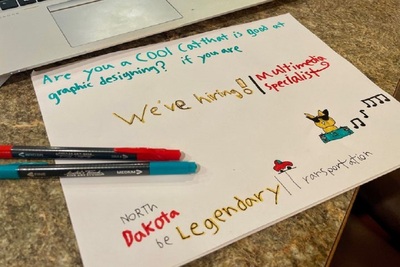 Are you a COOl Cat that is good at
graphic designing? if you are
We've hiring! | Multimedia
Specialist
NORTH
Dakota
be Legendary
Transportation
MEDIUM